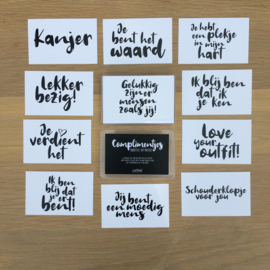 Kanjer
Je
bent het
waard
Je hebt
een plekje
in mijn
hart
Lekker
bezig!
Gelukkig
zijn er
mensen
zoals jij!
Ik blij ben
dat ik
je ken
Je
verdient
het
Complimentjes
Love
your
outfit!
Ik ben
blij dat
je er
bent!
Jij bent
een moedig
mens
Schouderklopje
voor jou